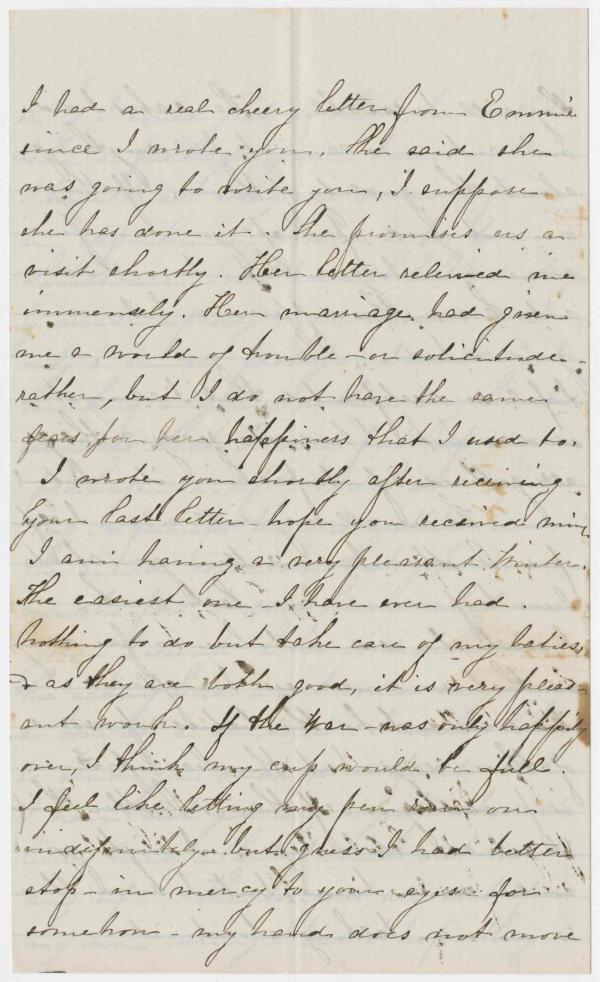 I had a real cheery letter from Emmie
since I wrote you. She said she
was going to write you, I suppose
she has done it. She promises us a
visit shortly. Her letter relieved me
immensely. Her marriage had given
me a world of trouble - or solicitude -
rather, but I do not have the same
fears for her happiness that I used to.
I wrote you shortly after receiving
your last letter - hope you received mine.
I am having a very pleasant Winter.
The easiest one - I have ever had.
Nothing to do but take care of my babies,
& as they are both good, it is very pleas-
ant work. If the War - was only happily
over, I think my cup would be full.
I feel like letting my pen run on
indefinitely - but guess I had better
stop - in mercy to your eyes - for
somehow - my hand does not move